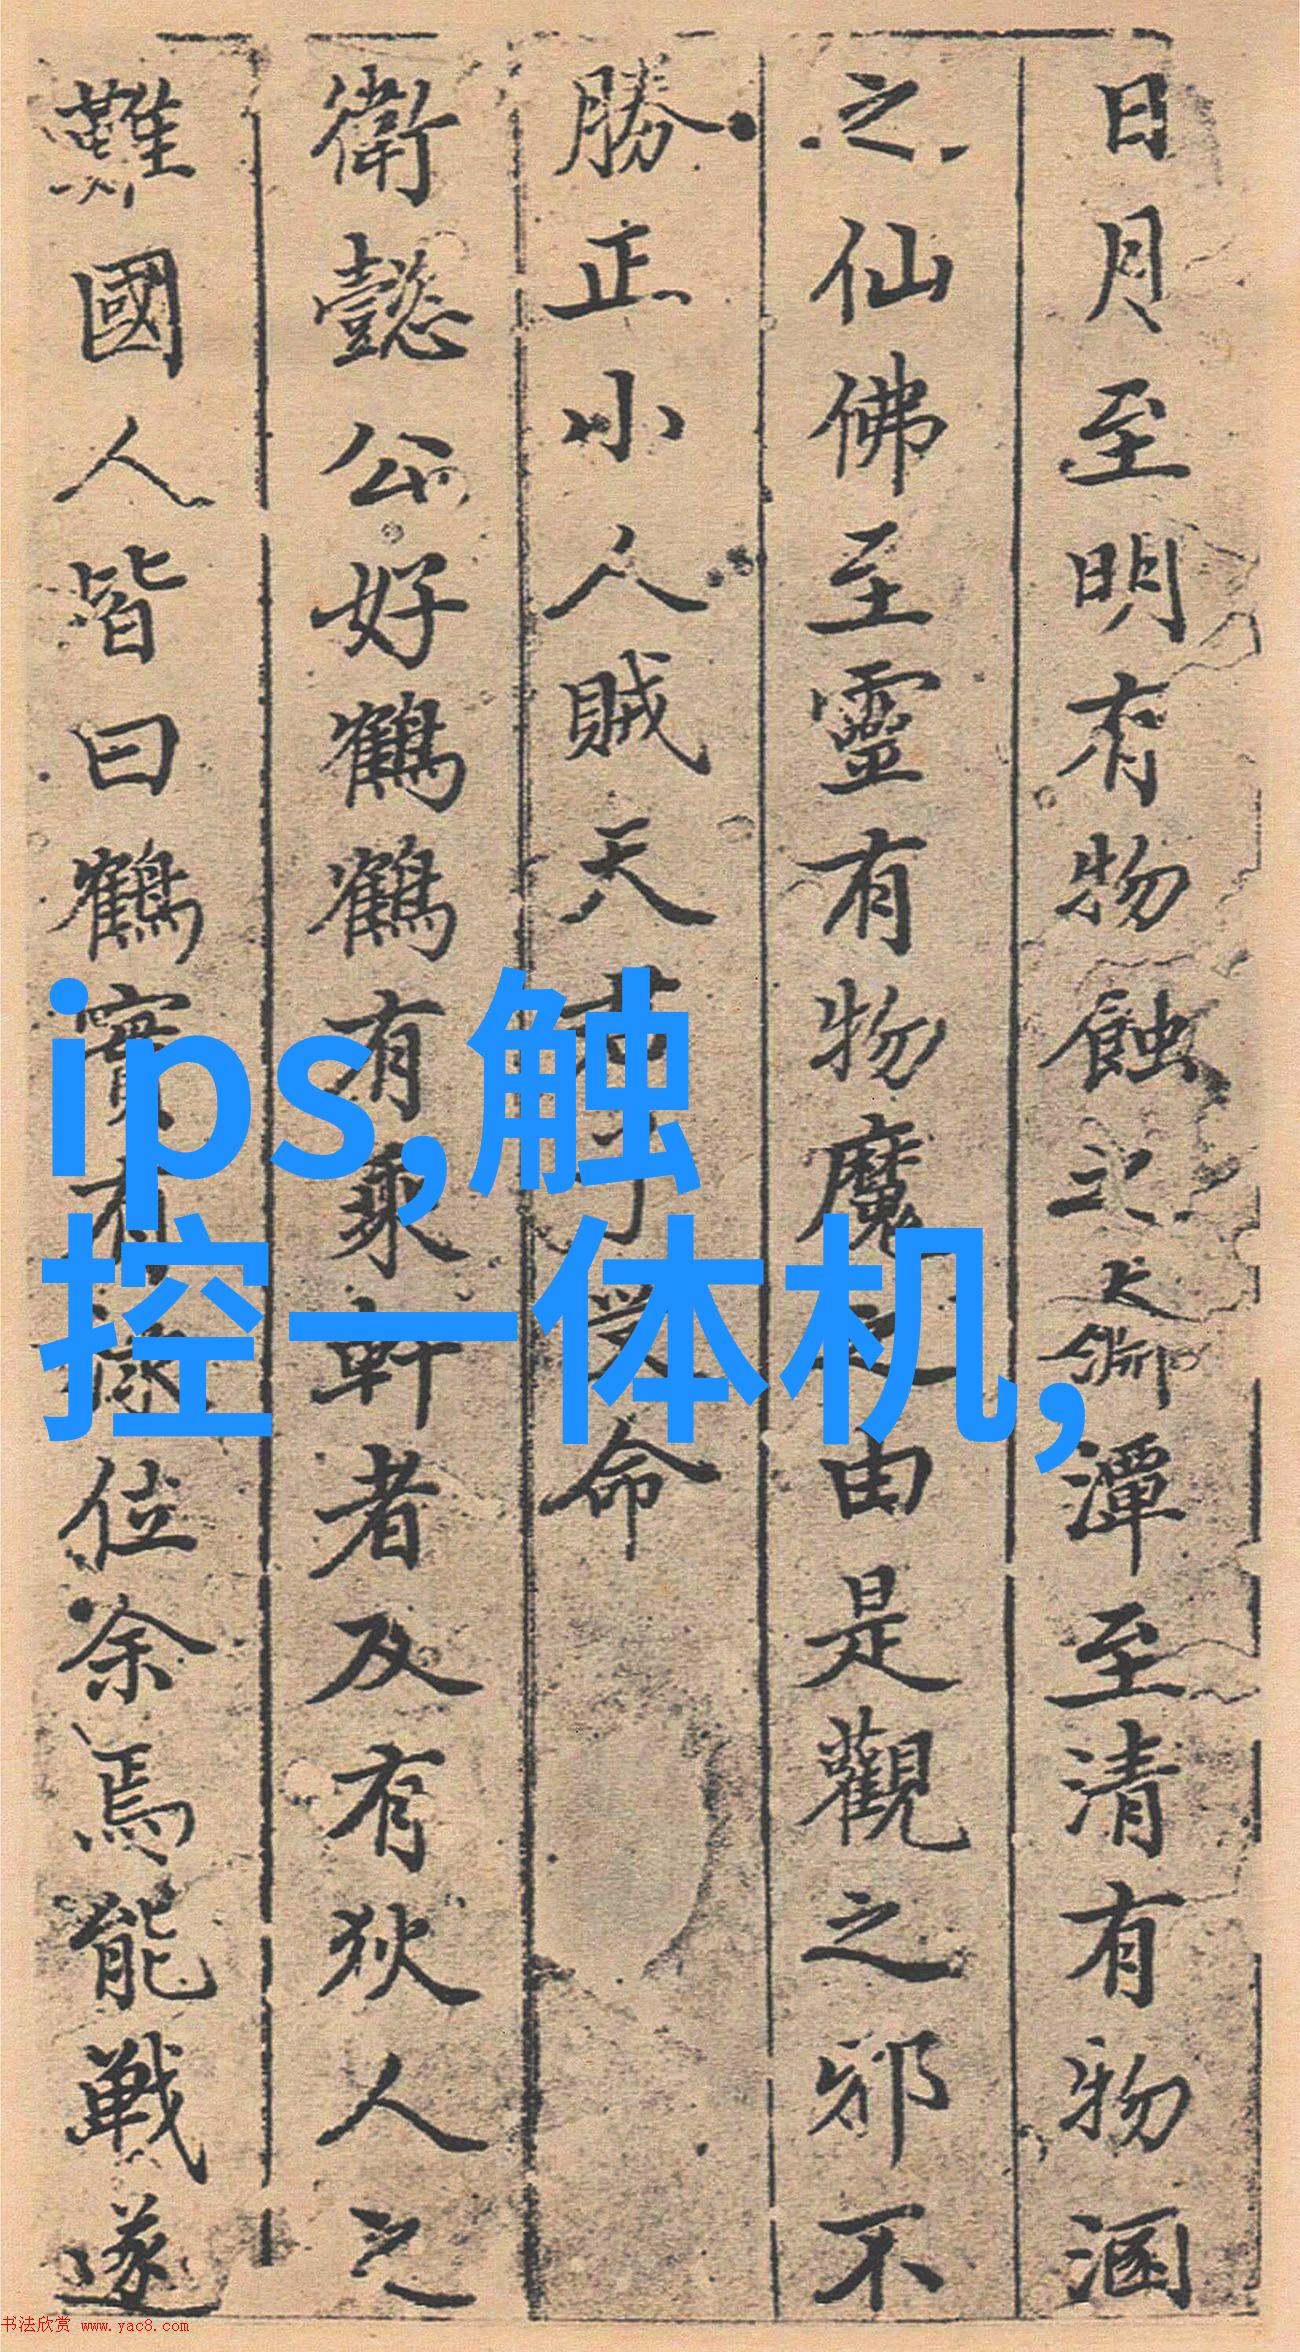 日月至明有物蝕之大淵潭至清有物溷
之仙佛至靈有物魔之由是觀之邪不
勝正小人賊天君子受命
衛懿公好鶴鶴有乘軒者及有狄人之
難國人皆曰鶴實有祿位余焉能戰遂
ips,触
控一体机,
书法欣赏 www.yac8.com